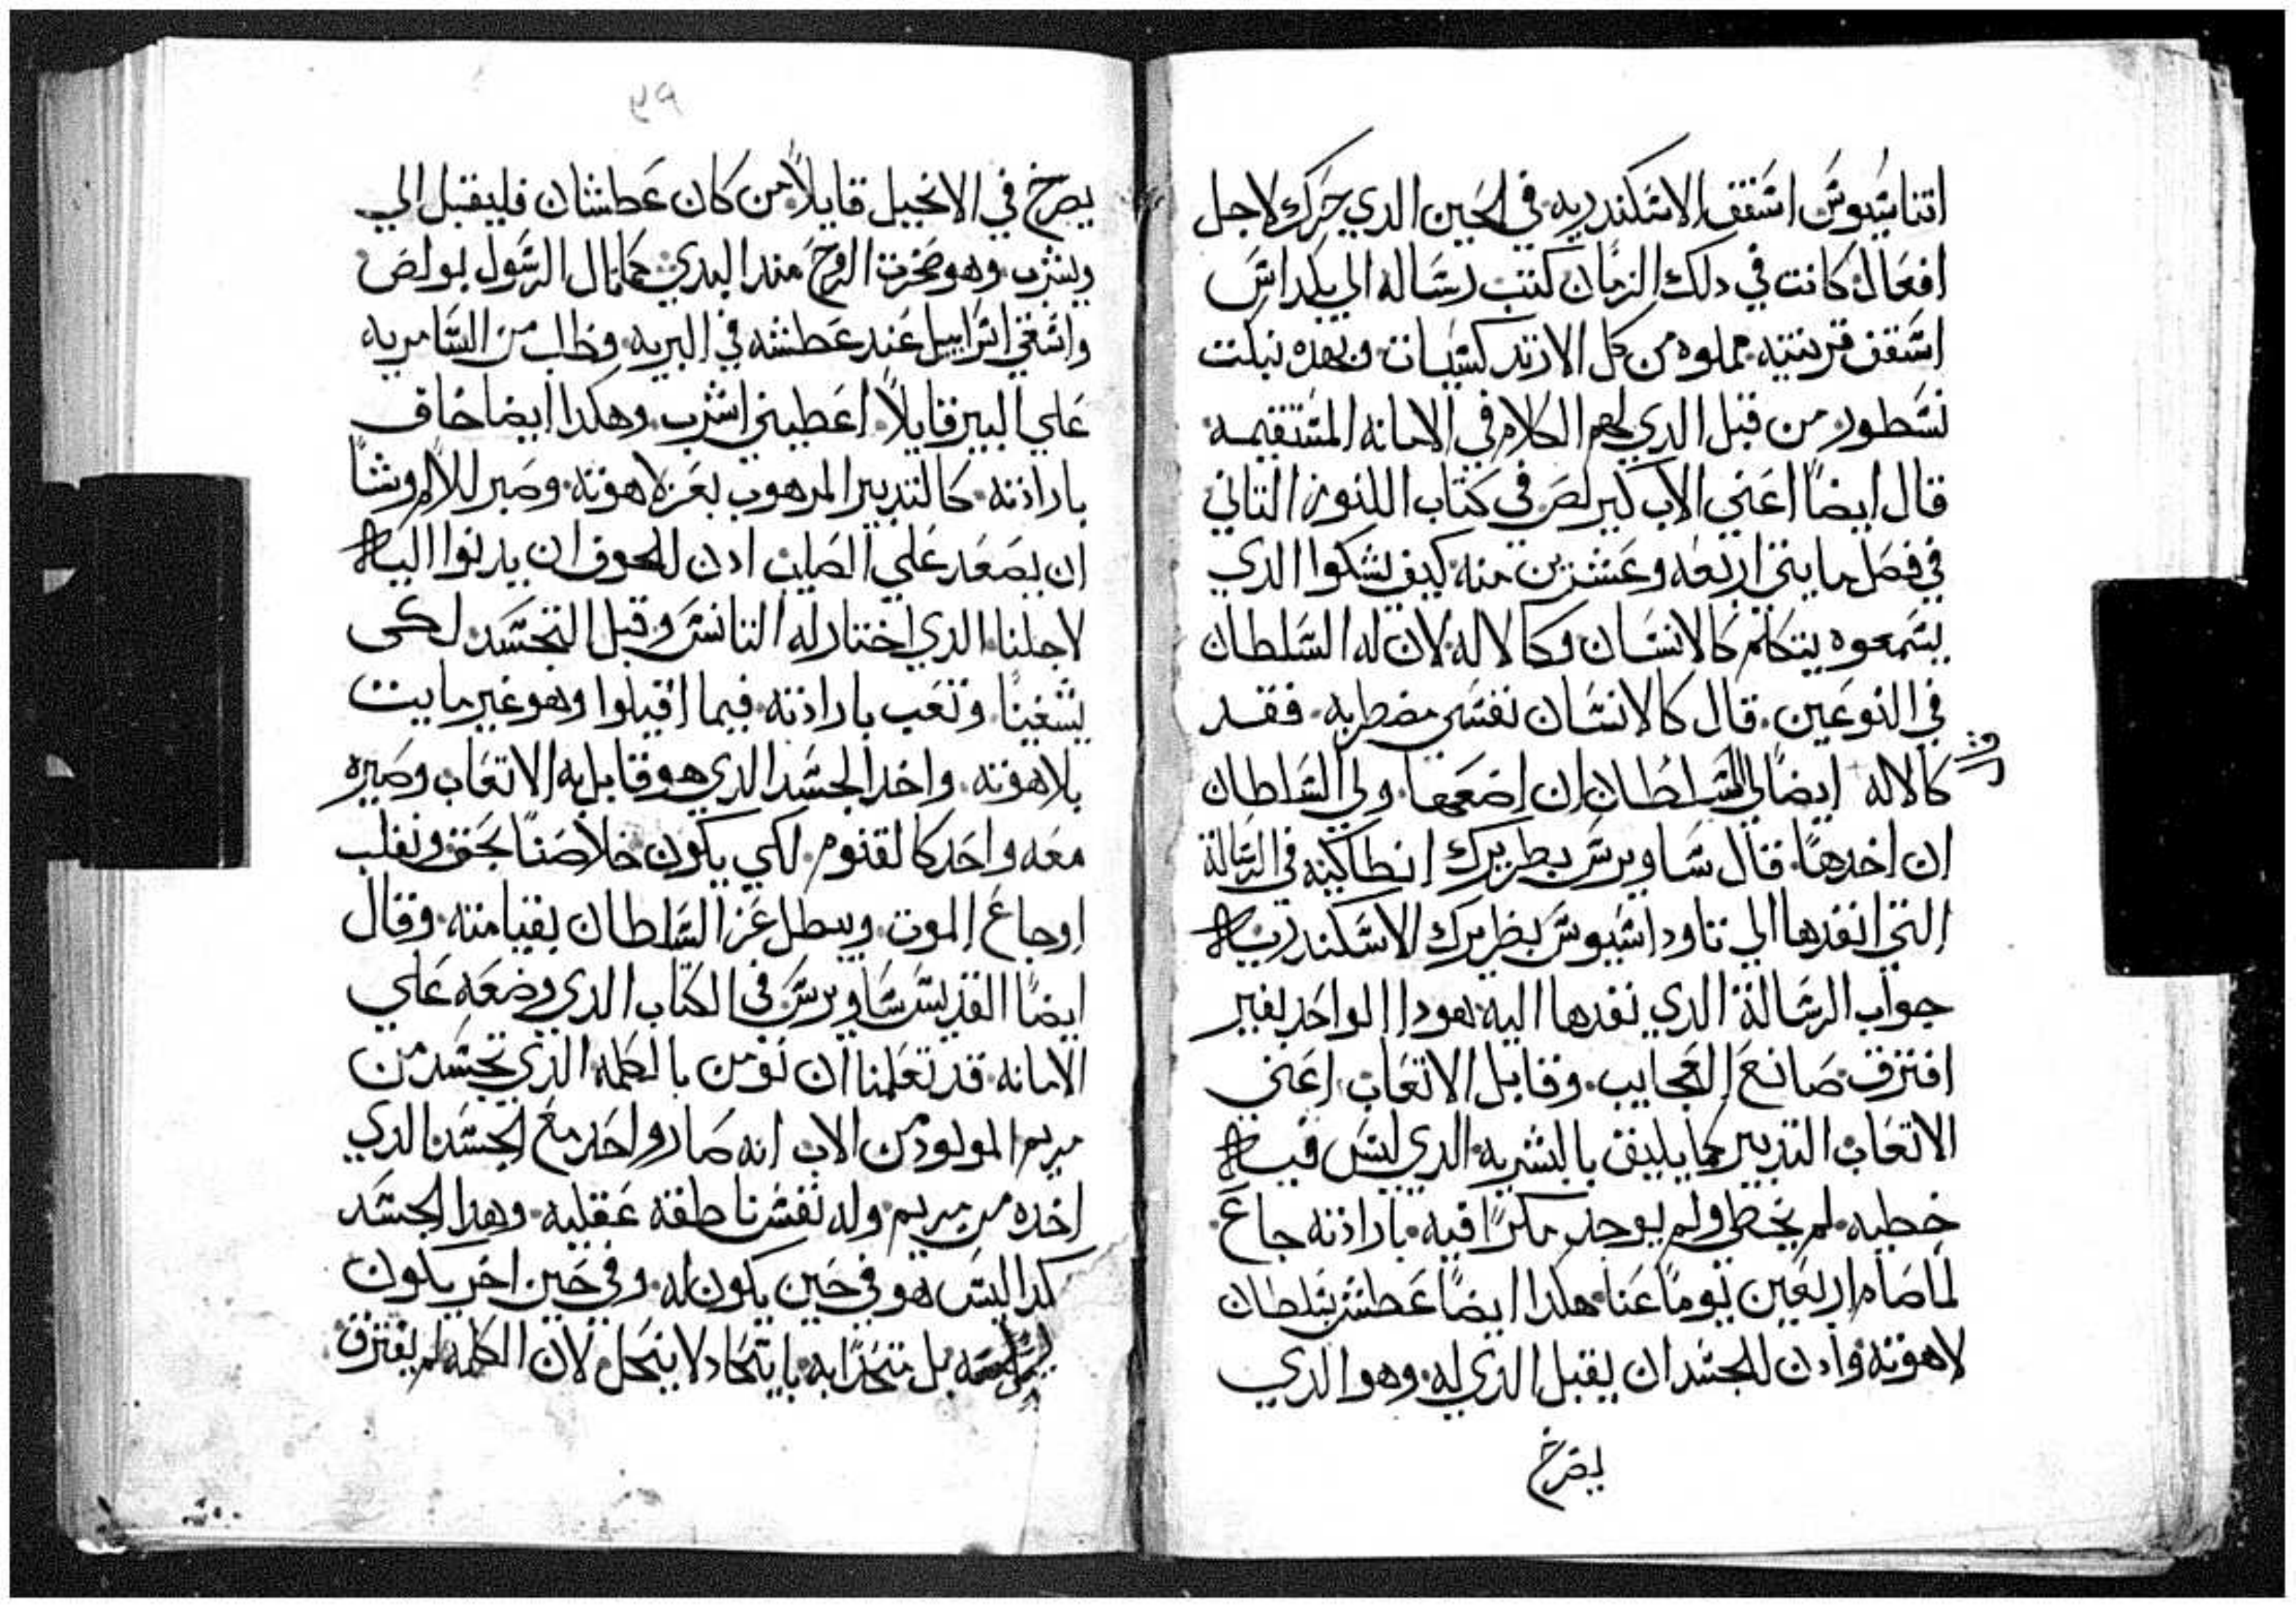 اتناسيوس اسقف الاسكندريه في الحين الدي حرك لاجل
افعال كانت في دلك الزمان كتب رساله الي
اسقف قرنتيه مملوه من كل الارتدكسيات وبهده نبكت
نسطور من قبل الدي لهم الكلام في الامانه المستقيمه
قال ايضاً اعني الاب كيرلص في كتاب الكنوز التاني
في فصل مايتي اربعه وعشرين منه كيف يشكوا الدي
يسمعوه يتكلم كالانسان وكالاله لان له السلطان
في النوعين قال كالانسان نفسي مضطربه فقد
كالاله ايضاً لي السلطان ان اضعها ولي السلطان
ان اخدها قال ساويرس بطريرك انطاكيه في الرسالة
التي انفدها الي تاوداسيوس بطريرك الاسكندريه
جواب الرسالة الدي نفدها اليه هودا الواحد بغير
افترق صانع العجايب وقابل الاتعاب اعني
الاتعاب التدبير كما يليق بالبشريه الدي ليس فيه
خطيه لم يخطي ولم يوجد مكراً فيه بارادته جاع
لما صام اربعين يوماً عنا هكدا ايضاً عطش بسلطان
لاهوته وادن للجسد ان يقبل الدي له وهو الدي
يصرخ
٩٩
يصرخ في الانجيل قايلاً من كان عطشان فليقبل الي
ويشرب وهو صخرت الروح مند البدي كما قال الرسول بولص
واسقي اسراييل عند عطشه في البريه وطلب من السامريه
علي البير قايلاً اعطيني اشرب وهكدا ايضا خاف
بارادته كالتدبير المرهوب بعز لاهوته وصبر للالام وشاً
ان يصعد علي الصليب ادن للخوف ان يدنوا اليه
لاجلنا الدي اختار له التانس وقبل التجسد لكي
يشفينا وتعب بارادته فيما اقبلوا وهو غير مايت
بلاهوته واخد الجسد الدي هو قابل به الاتعاب وصيره
معه واحد كالقنوم لكي يكون خلاصناً بحق ونغلب
اوجاع الموت ويبطل عز السلطان بقيامته وقال
ايضاً القديس ساويرس في الكتاب الدي وضعه علي
الامانه قد تعلمنا ان نومن بالكلمه الدي تجسد من
مريم المولود من الاب انه صار واحد مع الجسد الدي
اخده من مريم وله نفس ناطقه عقليه وهدا الجسد
كدا ليس هو في حين يكون له وفي حين اخر يكون
بل متحداً به باتحاد لا ينحل لان الكلمه لم يفترق